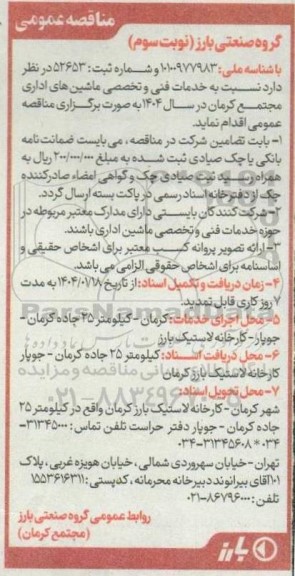 مناقصه عمومی
گروه صنعتی بارز (نوبت سوم)
با شناسه ملی: ۱۰۱۰۰۹۷۷۹۸۳ و شماره ثبت: ۵۲۶۵۳ در نظر
دارد نسبت به خدمات فنی و تخصصی ماشین های اداری
مجتمع کرمان در سال ۱۴۰۴ به صورت برگزاری مناقصه
عمومی اقدام نماید.
۱- بابت تضامین شرکت در مناقصه، می بایست ضمانت نامه
بانکی یا چک صیادی ثبت شده به مبلغ ۲۰۰/۰۰۰/۰۰۰ ریال به
همراه رسید ثبت صیادی چک و گواهی امضاء صادرکننده
چک از دفترخانه اسناد رسمی در پاکت بسته ارسال گردد.
۲- شرکت کنندگان بایستی دارای مدارک معتبر مربوطه در
حوزه خدمات فنی و تخصصی ماشین اداری باشند.
۳- ارائه تصویر پروانه کسب معتبر برای اشخاص حقیقی و
اساسنامه برای اشخاص حقوقی الزامی می باشد.
۴- زمان دریافت و تکمیل اسناد: از تاریخ ۱۴۰۴/۰۷/۱۸ به مدت
۷ روز کاری قابل تمدید.
۵- محل اجرای خدمات: کرمان - کیلومتر ۲۵ جاده کرمان -
جوپار- کارخانه لاستیک بارز
۶- محل دریافت اسناد: کیلومتر ۲۵ جاده کرمان - جوپار
کارخانه لاستیک بارز کرمان
۷- محل تحویل اسناد:
شهر کرمان - کارخانه لاستیک بارز کرمان واقع در کیلومتر ۲۵
جاده کرمان - جوپار دفتر حراست تلفن تماس: ۳۱۳۴۵۰۰۰-
۰۳۴ * ۳۱۳۴۵۶۰۸-۰۳۴
تهران - خیابان سهروردی شمالی، خیابان هویزه غربی، پلاک
۱۰۱ آقای بیرانوند دبیرخانه محرمانه، کدپستی: ۱۵۵۳۶۱۶۳۱۱
تلفن: ۸۶۷۹۶۰۰۰-۰۲۱
روابط عمومی گروه صنعتی بارز
(مجتمع کرمان)
بارز
ParsNamadData
۰۲۱-۸۸۳۴۹۶۷۰